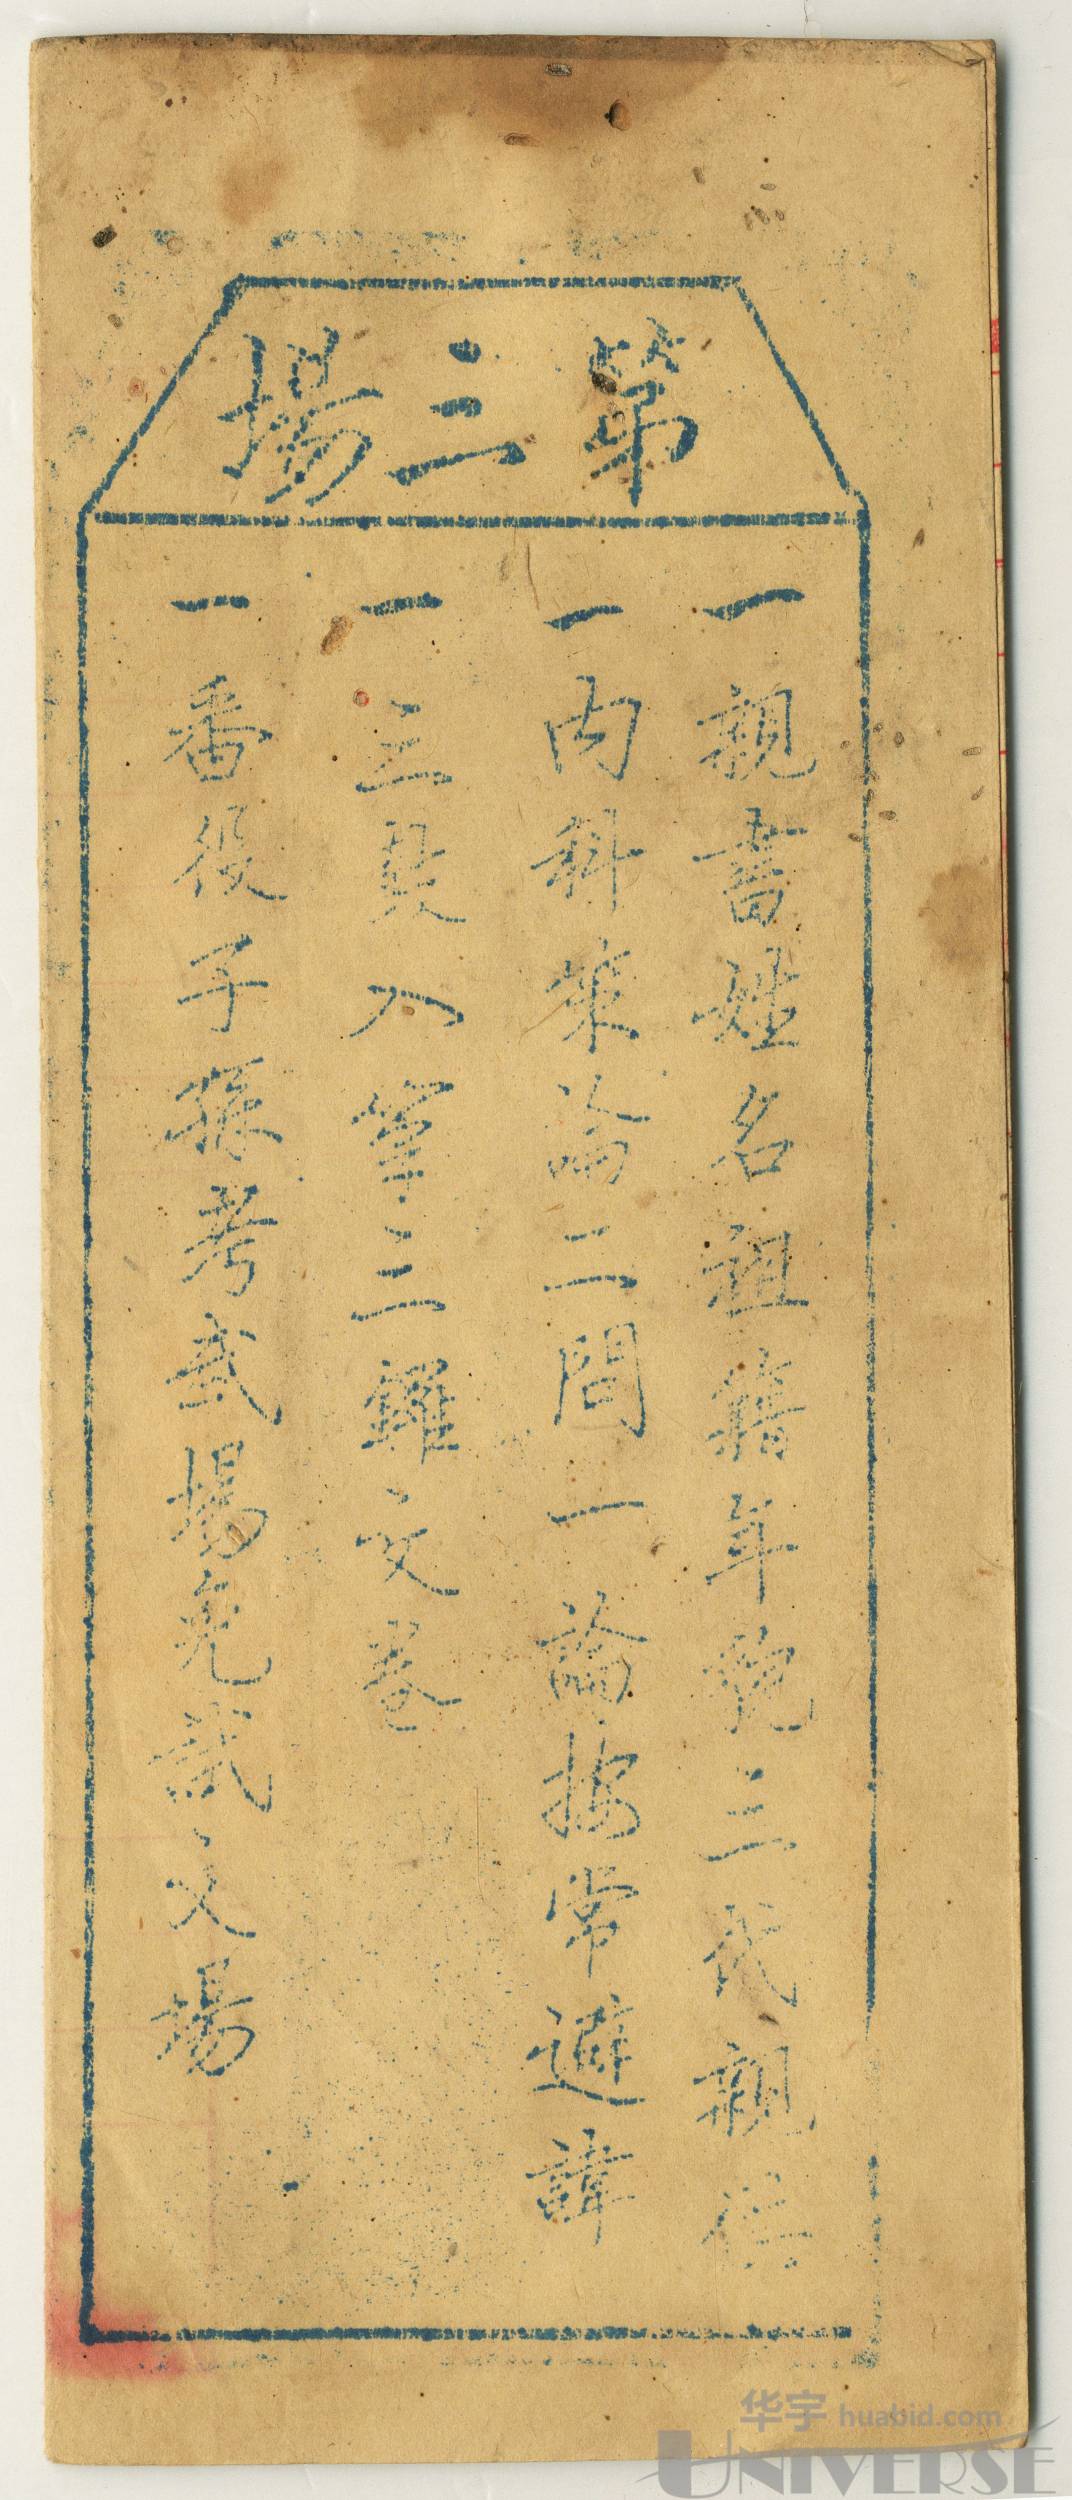 第三場
一親書姓名祖籍年貌三代親供
一內科策論二問一論按常避諱
一三點入簾三鑼交卷
一番役子孫考武場免試文場
华宇 huabid.com
UNIVERSE